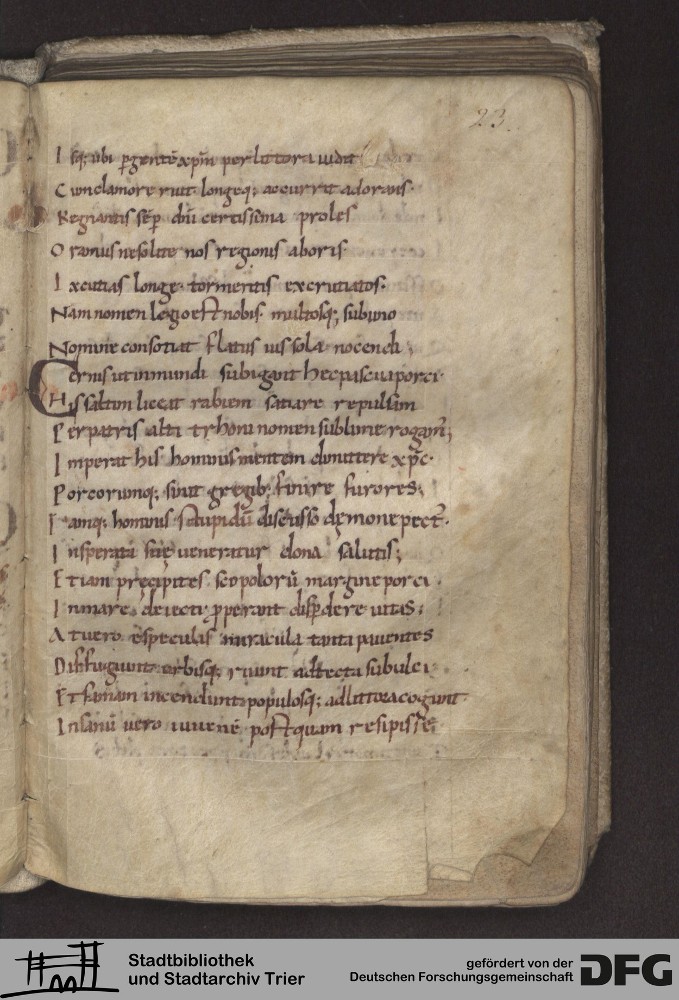 23.
I sq; ubi pgentē xpm per littora uidit
C um clamore ruit longeq; accurrit adorans.
Regnantis sēp dn̄i certissima proles
O ramus ne solite nos regionis ab oris.
I xcutias longe. tormentis excrutiatos.
Nam nomen legio est nobis. multosq; sub uno
Nomine consotiat flatus ius sola nocendi;
Cernis ut inmundi subigant hec pascua porci.
His saltim liceat rabiem satiare repulsam
Per patris alti throni nomen sublime rogam̄;
I mperat his hominis mentem dimittere xp̄c.
Porcorumq; sinit gregib; finire furores;
Iamq; hominis stupidū discusso dęmone pect.
I nsperata sue ueneratur dona salutis;
Etiam precipites scopolorū margine porci.
I n mare deiecti pperant dispdere uitas;
At uero e speculis miracula tanta pauentes
Diffugiunt urbisq; ruunt ad tecta subulci.
Et famam incendunt populosq; ad littora cogunt.
Insanū uero iuuenē postquam resipisse;
Stadtbibliothek
und Stadtarchiv Trier
gefördert von der
Deutschen Forschungsgemeinschaft
DFG